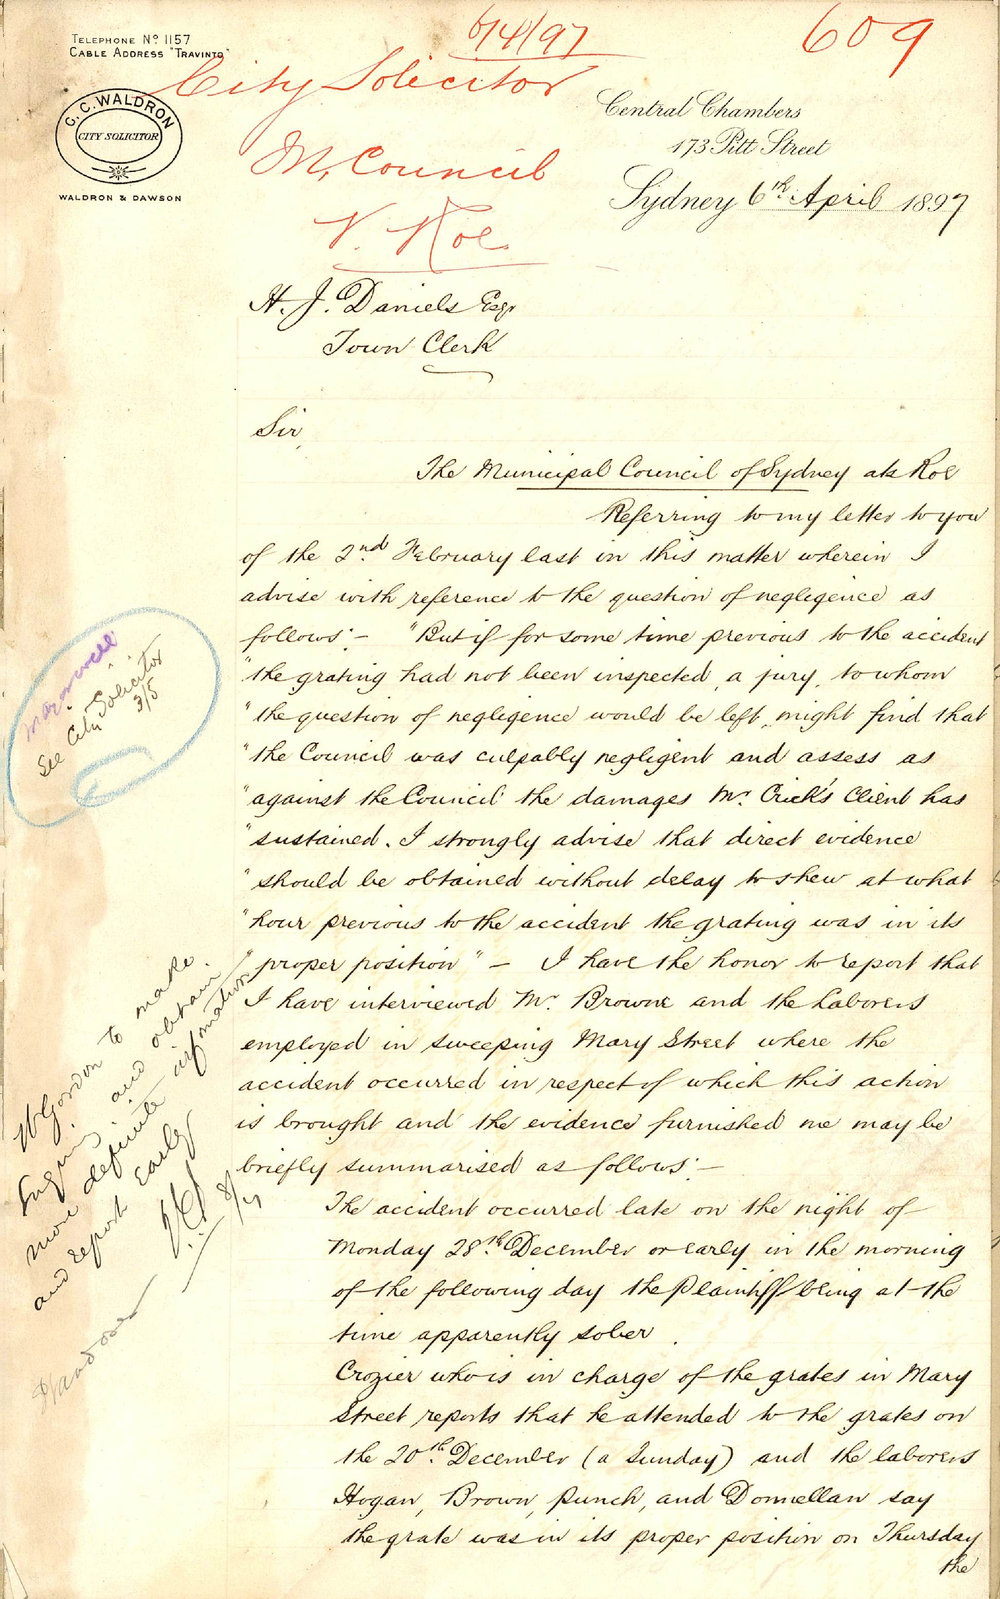 TELEPHONE No 1157
CABLE ADDRESS "TRAVINTO"
C. C. WALDRON
CITY SOLICITOR
WALDRON & DAWSON
6/4/97
609
City Solicitor
M. Council
V. Roe
Central Chambers
173 Pitt Street
Sydney 6th April 1897
H. J. Daniels Esqr
Town Clerk
Sir,
The Municipal Council of Sydney ats Roe
Referring to my letter to you
of the 2nd February last in this matter wherein I
advise with reference to the question of negligence as
follows:- "But if for some time previous to the accident
"the grating had not been inspected, a jury, to whom
"the question of negligence would be left, might find that
"the Council was culpably negligent and assess as
"against the Council the damages Mr. Crick's Client has
"sustained. I strongly advise that direct evidence
"should be obtained without delay to shew at what
"hour previous to the accident the grating was in its
"proper position" - I have the honor to report that
I have interviewed Mr. Browne and the laborers
employed in sweeping Mary Street where the
accident occurred in respect of which this action
is brought and the evidence furnished me may be
briefly summarised as follows:-
The accident occurred late on the night of
Monday 28th December or early in the morning
of the following day the Plaintiff being at the
time apparently sober.
Crozier who is in charge of the grates in Mary
Street reports that he attended to the grates on
the 20th December (a Sunday) and the laborers
Hogan, Brown, Punch, and Donnellan say
the grate was in its proper position on Thursday
the
See City Solicitor
3/5
Gordon to make
and obtain
more definite information
and report early